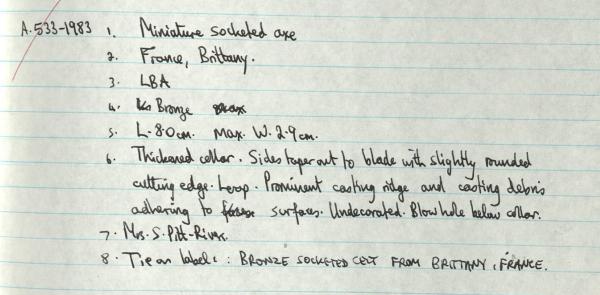 A.533-1983 1. Miniature socketed axe
2. France, Brittany.
3. LBA
4. Bronze
5. L. 8.0cm. Max. W. 2.9cm.
6. Thickened collar. Sides taper out to blade with slightly rounded
cutting edge. Loop. Prominent casting ridge and casting debris
adhering to surfaces. Undecorated. Blow hole below collar.
7. Mrs. S. Pitt-Rivers.
8. Tie on label: : BRONZE SOCKETED CELT FROM BRITTANY, FRANCE.